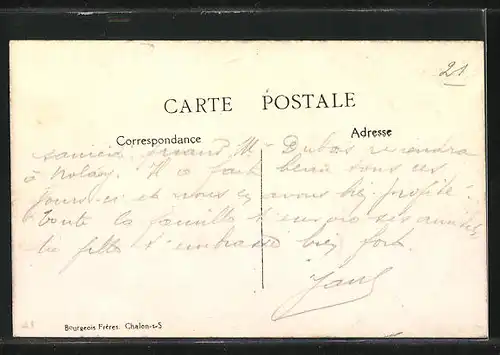 21
CARTE POSTALE
Correspondance
Adresse
quand M. Dubos reviendra
à Nolay. Il a fait beau tous ces
jours-ci et nous en avons bien profité.
Toute la famille t'envoie ses amitiés
ta fille t'embrasse bien fort.
Bourgeois Frères. Chalon-s-S